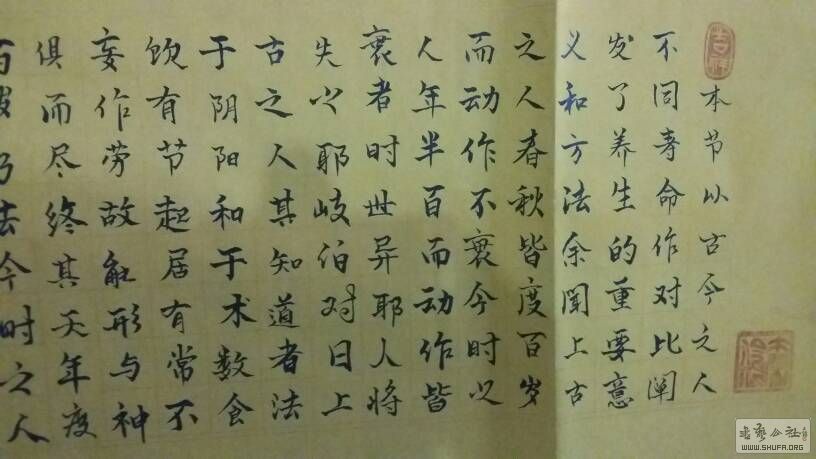 吉祥
本节以古今之人
不同寿命作对比阐
发了养生的重要意
义和方法余闻上古
之人春秋皆度百岁
而动作不衰今时之
人年半百而动作皆
衰者时世异耶人将
失之耶岐伯对曰上
古之人其知道者法
于阴阳和于术数食
饮有节起居有常不
妄作劳故能形与神
俱而尽终其天年度
百岁乃去今时之人
书艺公社
WWW.SHUFA.ORG